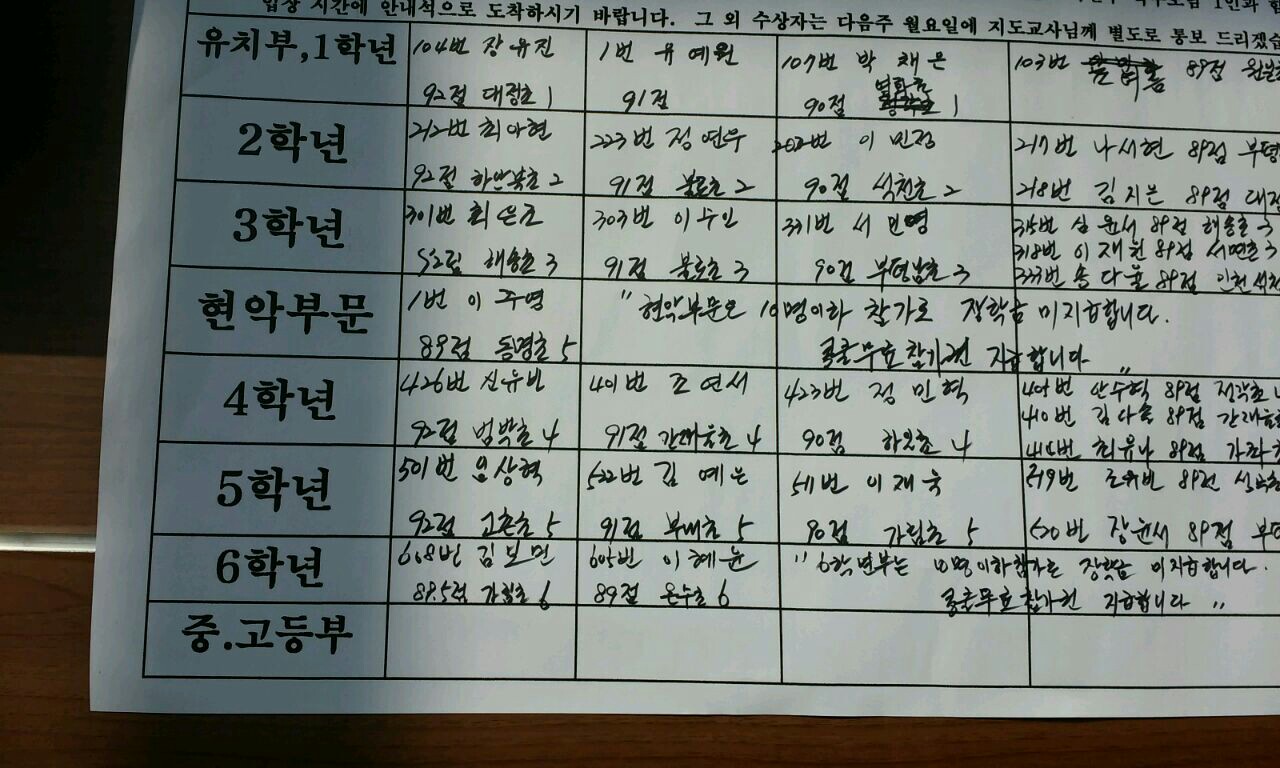 입장 시간에 안내석으로 도착하시기 바랍니다. 그 외 수상자는 다음주 월요일에 지도교사님께 별도로 통보 드리겠습
유치부,1학년 104번 장유진 1번 유예원 107번 박채은 103번 89점
92점 대정초 1 91점 90점 1
2학년 212번 최아현 223번 정연우 202번 이민정 217번 나서현 89점 부평
92점 하안북초 2 91점 불로초 2 90점 석천초 2 218번 김지은 89점 대정
3학년 301번 최은조 303번 이수인 331번 서민영 315번 윤서 89점 해송초 3
해송초 3 91점 불로초 3 90점 부평남초 3 318번 이재원 89점 서면초 3
333번 송다울 89점 인천석천
현악부문 1번 이주영 " 현악부문은 10명이하 참가로 장학금 미지급합니다.
89점 동명초 5 콩쿨무료참가권 지급합니다 "
4학년 426번 신유빈 401번 조연서 423번 정민혁 405번 안수혁 89점
92점 범박초 4 91점 간재울초 4 90점 4 410번 김다솔 89점 간재울
최유나 89점 가좌
5학년 501번 엄상혁 522번 김예은 511번 이재욱 519번 89점
92점 고촌초 5 91점 부내초 5 90점 가림초 5 520번 장윤서 89점 부
6학년 608번 김보민 605번 이혜윤 " 6학년부는 10명이하참가로 장학금 미지급합니다.
88.5점 가림초 6 89점 온수초 6 콩쿨무료참가권 지급합니다 "
중.고등부